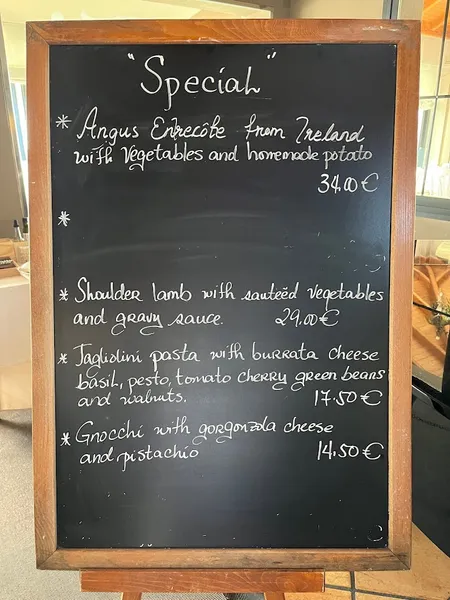 "Special"
* Angus Entrecôte from Ireland
with vegetables and homemade potato
34.00 €
*
* Shoulder lamb with sauteëd vegetables
and gravy sauce. 29.00 €
* Tagliolini pasta with burrata cheese
basil, pesto, tomato cherry green beans
and walnuts. 17.50 €
* Gnocchi with gorgonzola cheese
and pistachio 14.50 €